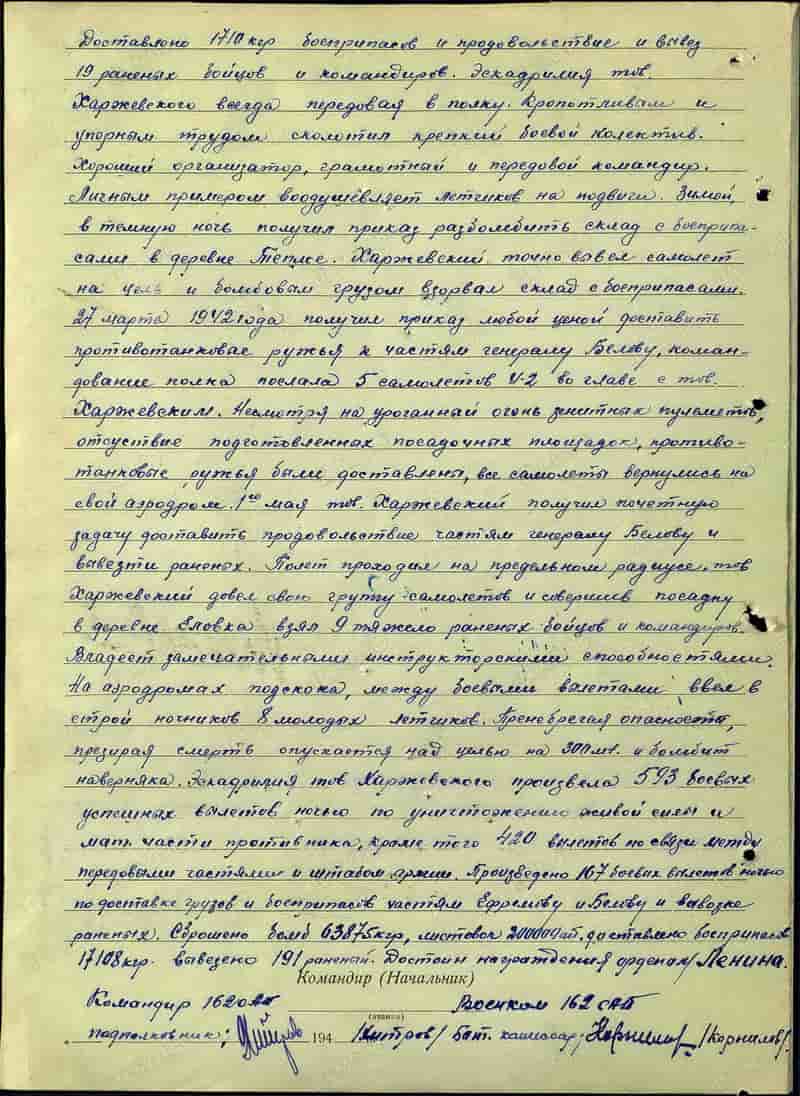 Доставлено 1710 кгр боеприпасов и продовольствие и вывез
19 раненых бойцов и командиров. Эскадрилия тов.
Харжевского всегда передовая в полку. Кропотливам и
упорным трудом сколотил крепкий боевой колектив.
Хороший организатор, грамотный и передовой командир.
Личным примером воодушевляет летчиков на подвиги. Зимой,
в темную ночь получил приказ разбомбить склад с боеприпа-
сами в деревне Тепме. Харжевский точно вывел самолет
на цель и бомбовым грузом взорвал склад с боеприпасами.
27 марта 1942 года получил приказ любой ценой доставить
противотанковые ружья к частям генералу Белову, коман-
дование полка послала 5 самолетов У-2 во главе с тов.
Харжевским. Несмотря на ураганный огонь зенитных пулеметов,
отсуствие подготовленных посадочных площадок, противо-
танковые ружья были доставлены, все самолеты вернулись на
свой аэродром. 1го мая тов. Харжевский получил почетную
задачу доставить продовольствие частям генералу Белову и
вывезти раненых. Полет проходил на предельном радиусе, тов
Харжевский довел свою группу самолетов и совершив посадку
в деревне Еловка взял 9 тяжело раненых бойцов и командиров.
Владеет замечательными инструкторскими способностями.
На аэродромах подскока, между боевыми вылетами ввел в
строй ночников 8 молодых летчиков. Пренебрегая опасность,
презирая смерть опускается над целью на 300 мт. и бомбит
наверняка. Эскадрилия тов Харжевского произвела 593 боевых
успешных вылетов ночью по уничтожению живой силы и
мат. части противника, кроме того 420 вылетов по связи между
передовыми частями и штабом армии. Произведено 167 боевых вылетов ночью
по доставке грузов и боеприпасов частям Ефремову и Белову и вывозке
раненых. Сброшено бомб 63875 кгр, листовок 200000 шт. доставлено боеприпасов
17108 кгр. вывезено 191 раненый. Достоин награждения орденом Ленина.
Командир (Начальник)
Командир 162 оАП Военком 162 САП
(подпись)
подполковник: 194 /Митров/ Бат. комиссар /Корнилов/.